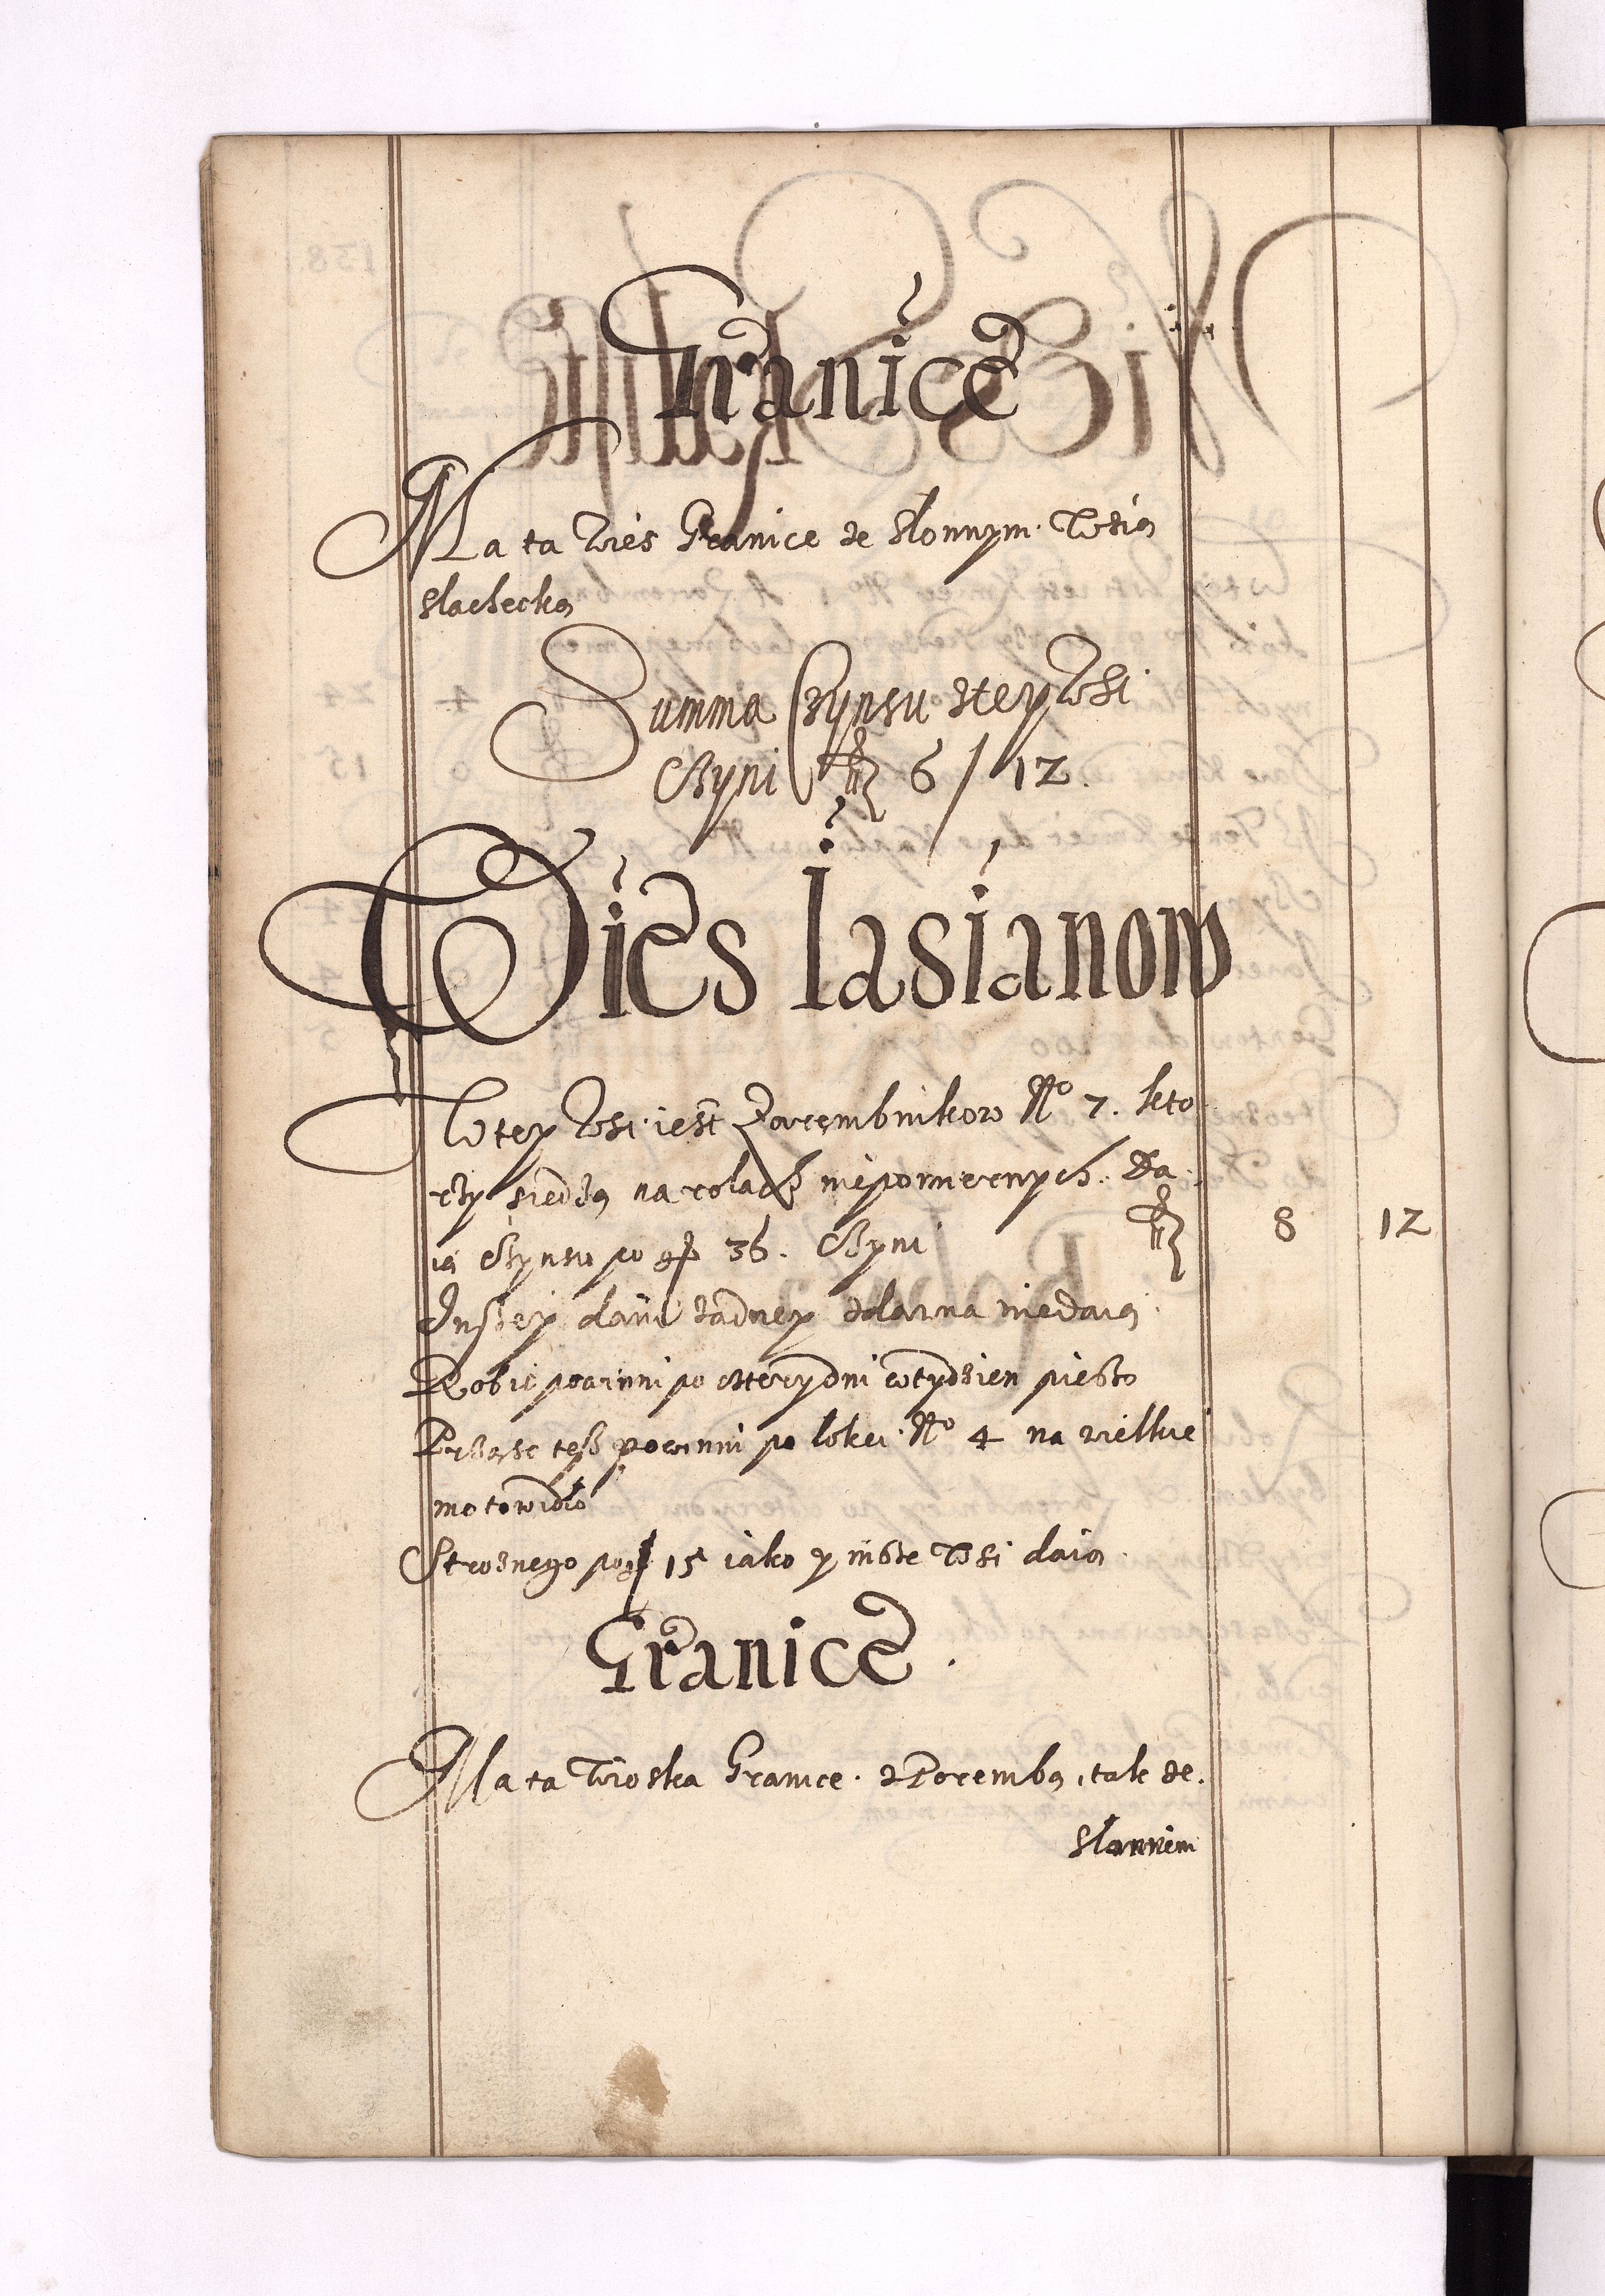 Granice
Ma ta Wies Granice ze Slonnym Wsią
slachecką
Summa Czynsu ztey Wsi
Czyni 6 / 12.
Wies Iasianow
W tey Wsi iest Zarembnikow No 7. kto
rzy siedzą na rolach niepomiernych. Da
ią Czynszu po gr 36. Czyni 8 12
Inszey dani żadney zdawna niedaią
Robic powinni po cztery dni wtydzien pieszo
Przasc tesz powinni po lokci No 4 na wielkie
motowidło
Stroznego po gr 15 iako y insze Wsi daią
Granice.
Ma ta Wioska Granice. z Porembą, tak ze.
Slonnem